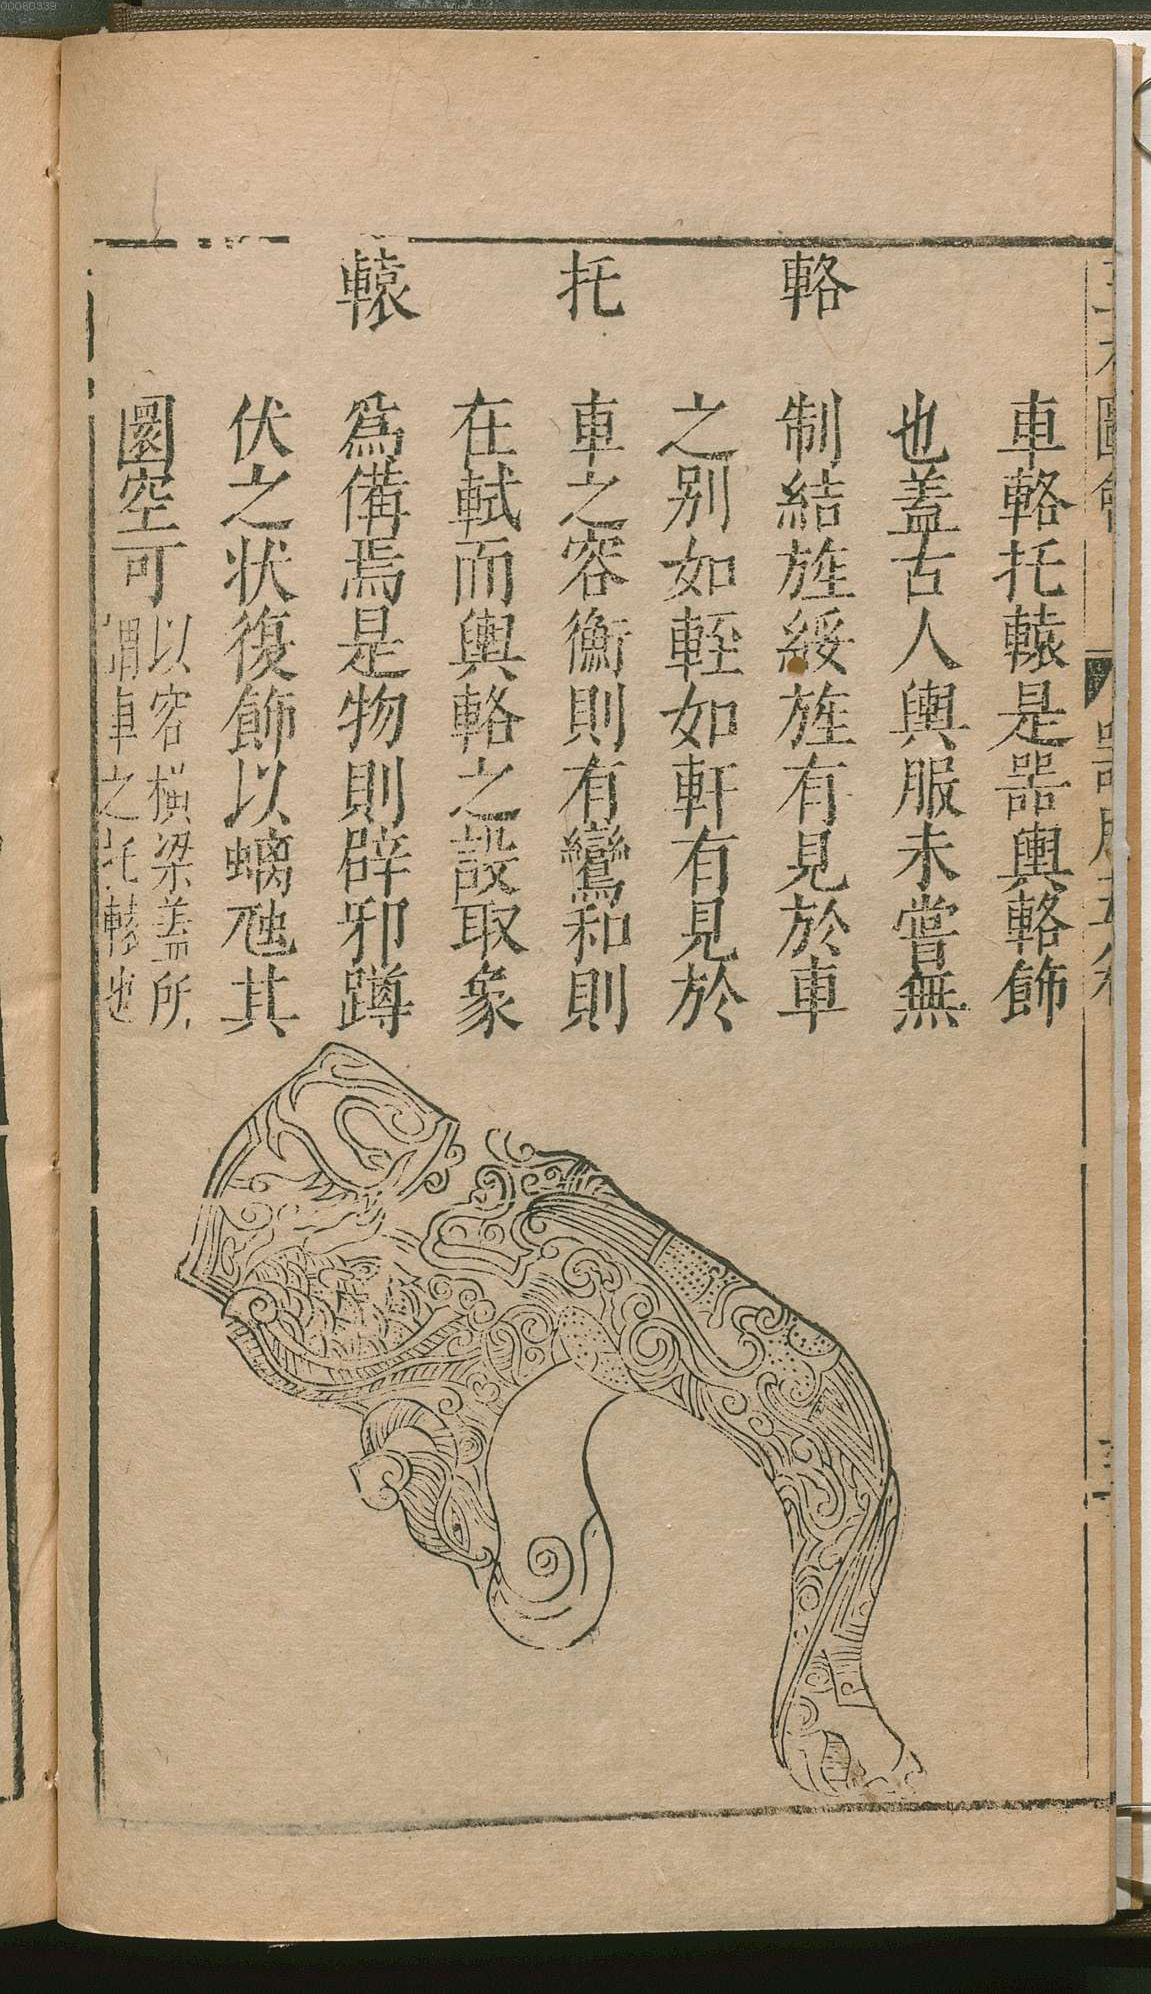 00060339
輅托轅
車輅托轅是器輿輅飾
也蓋古人輿服未嘗無
制結旌綏旌有見於車
之別如輊如軒有見於
車之容衡則有鸞和則
在軾而輿輅之設取象
爲備焉是物則辟邪蹲
伏之状復飾以螭虺其
圜空可以容橫梁蓋所
謂車之托轅也
圖會
器用五卷